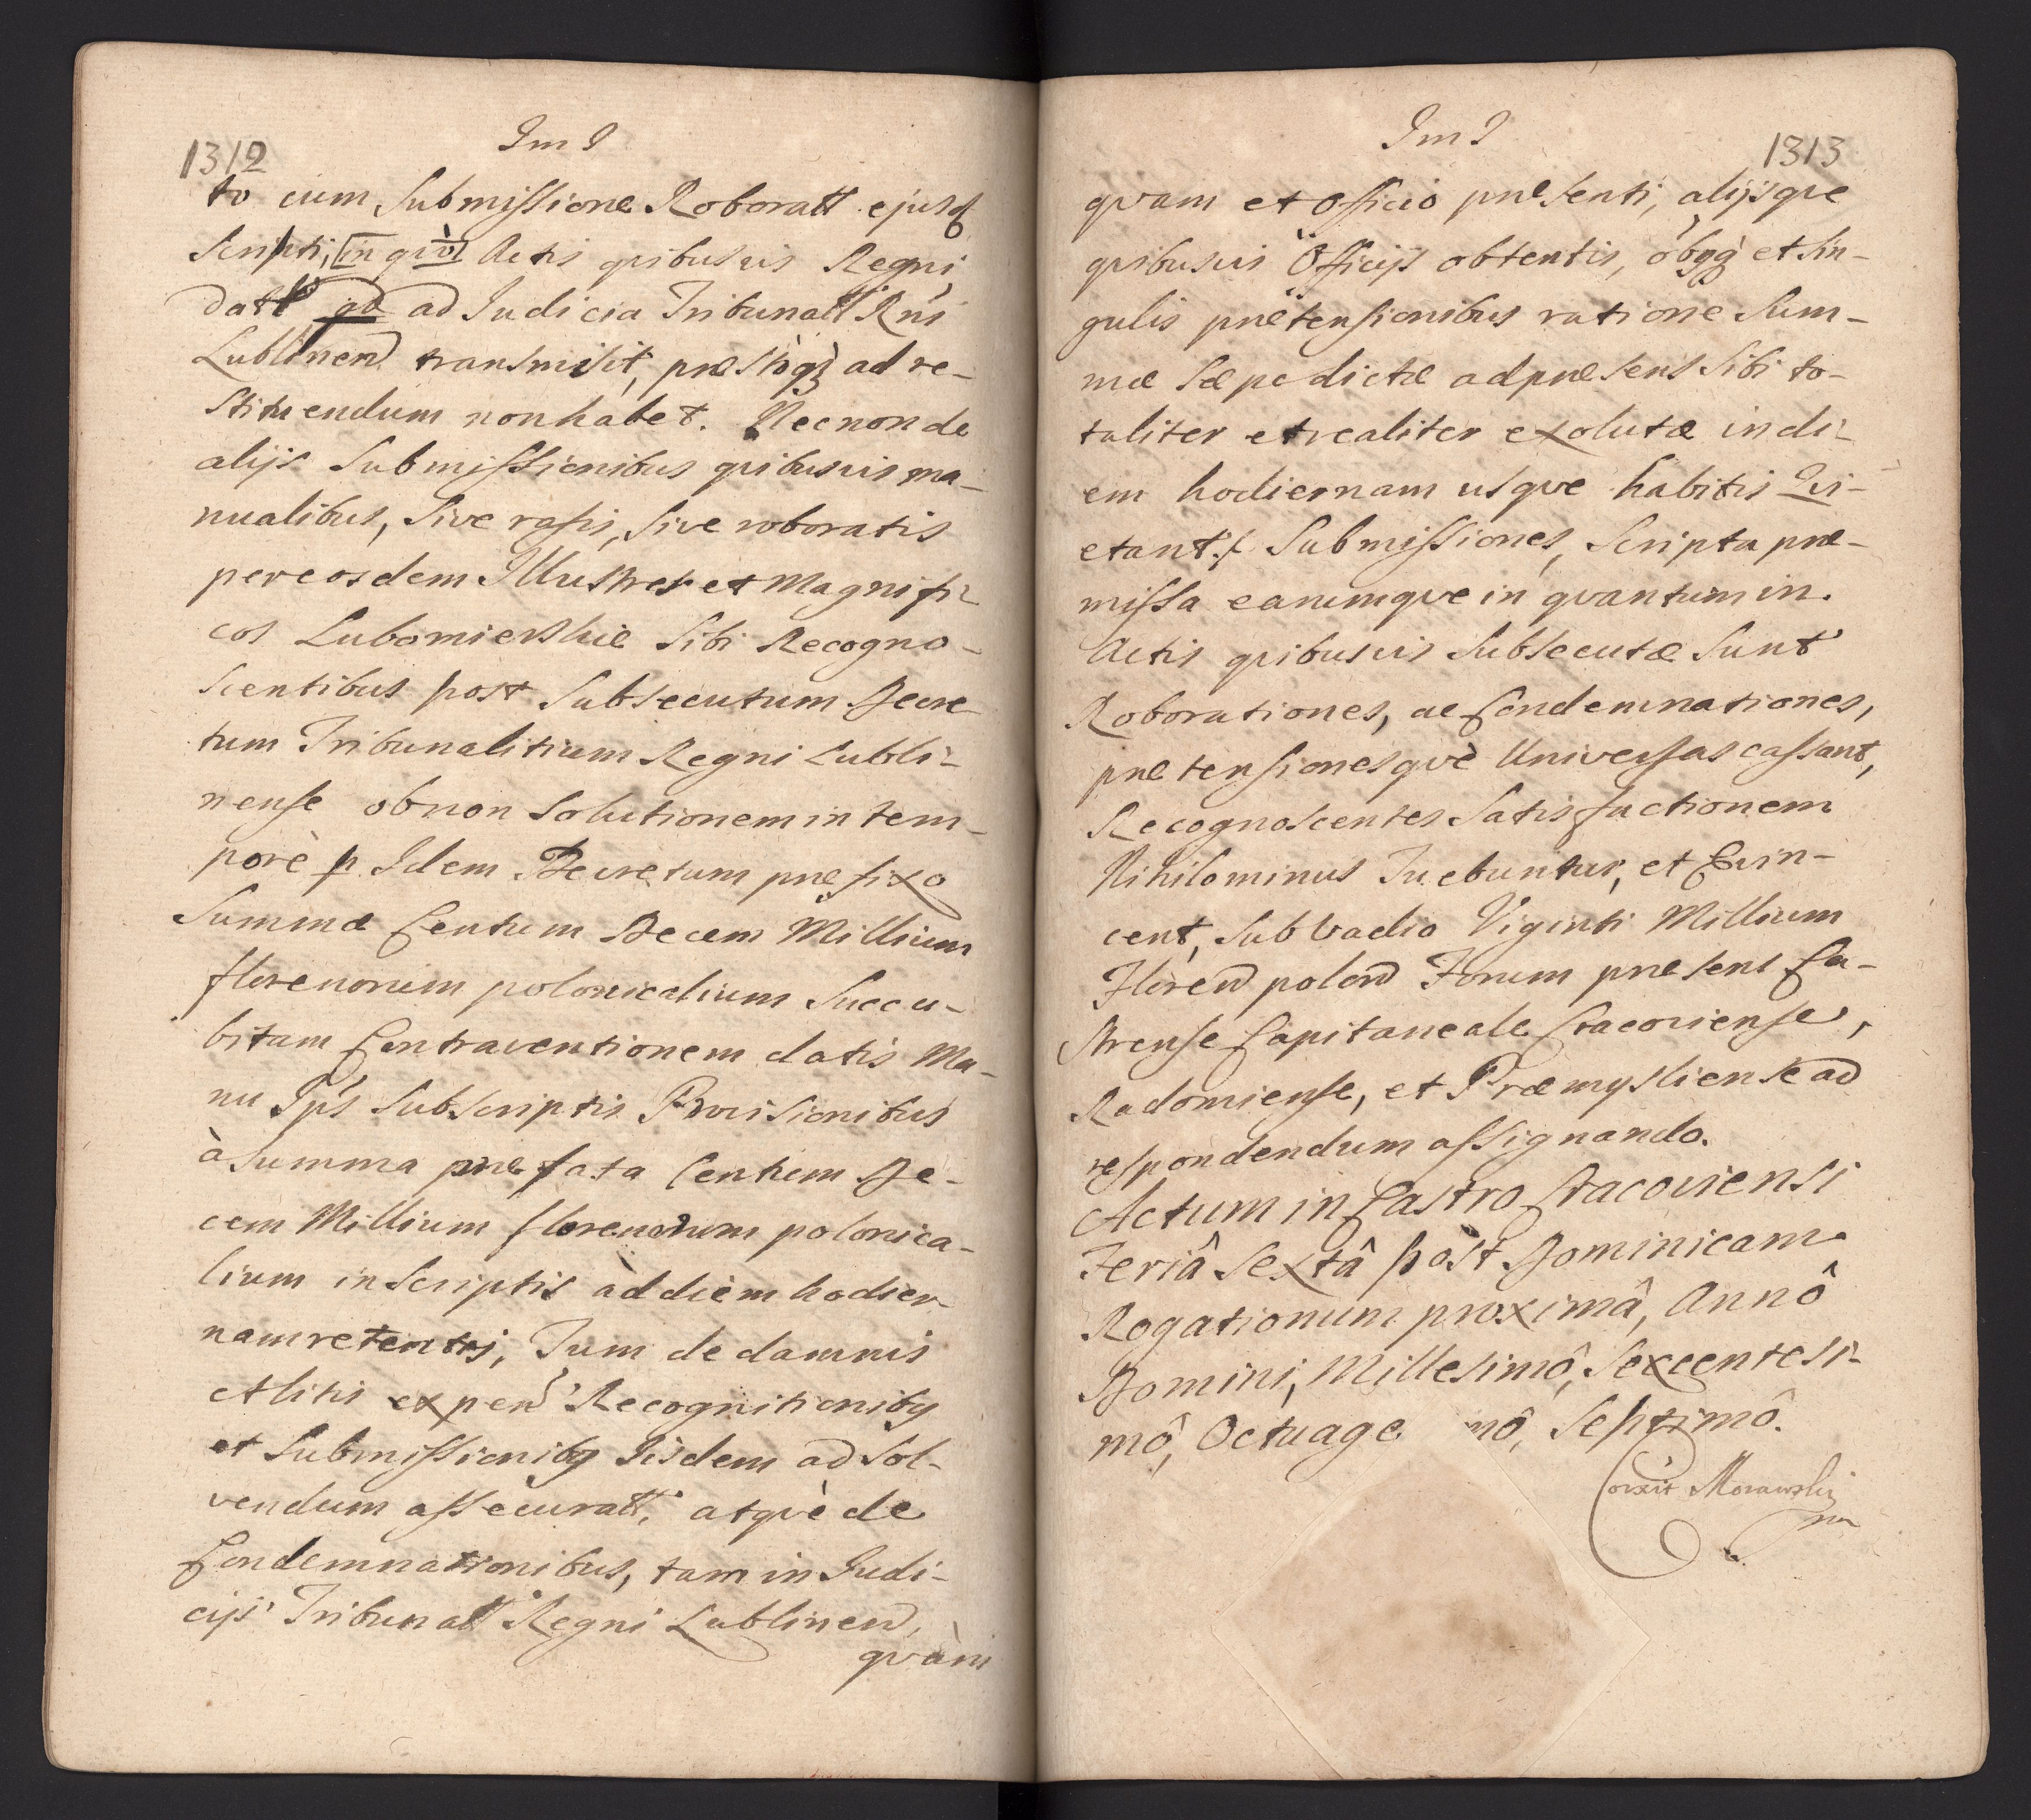 1312
Im I
to cum Submissione Roboratt ejusd
Scripti, in qvo Actis qvibusvis Regni
datt ad Judicia Tribunatt Rni
Lublinen transmisit, præstiqz ad re-
stituendum non habet. Necnon de
alijs Submissionibus qvibusvis ma-
nualibus, sive rasis, sive roboratis
per eosdem Illustres et Magnifi-
cos Lubomierskie Sibi Recogno-
scentibus post Subsecutum Decre
tum Tribunalitium Regni Lubli-
nense ob non Solutionem in tem-
porè p Idem Decretum præfixo
Summæ Centum Decem Millium
florenorum polonicalium Succu-
bitam Contraventionem datis Ma-
nu Ips Subscriptis Provisionibus
à Summa præfata Centum De-
cem Millium florenorum polonica-
lium in Scriptis ad diem hodier-
nam retentis, Tum de damnis
et litis expen Recognitioniby
et Submissioniby Iisdem ad Sol-
vendum assecuratt, atqvè de
Condemnationibus, tam in Judi-
cijs Tribunatt Regni Lublinen,
qvàm
Im I
1313
qvam et Officio præsenti, alijsqve
qvibusvis Officijs obtentis, et Sin-
gulis prætensionibus ratione Sum-
mæ Sæpedictæ ad præsens Sibi to-
taliter et realiter exolutæ in di-
em hodiernam usqve habitis Qvi-
etant, Submissiones, Scripta præ-
missa earumqve in qvantum in
Actis qvibusvis Subsecutæ Sunt
Roborationes, ac Condemnationes,
prætensionesqvè Universas cassant,
Recognoscentes Satisfactionem
Nihilominus Tuebuntur, et Evin-
cent, Sub Vadio Viginti Millium
Floren polon Forum præsens Ca-
strense Capitaneale Cracoviense,
Radomiense, et Præmysliense ad
respondendum assignando.
Actum in Castro Cracoviensi
Feriâ Sextâ post Dominicam
Rogationum proximâ, Annô
Domini, Millesimô, Sexcentesi-
mô, Octuage mô, Septimô.
Corxit Morawski